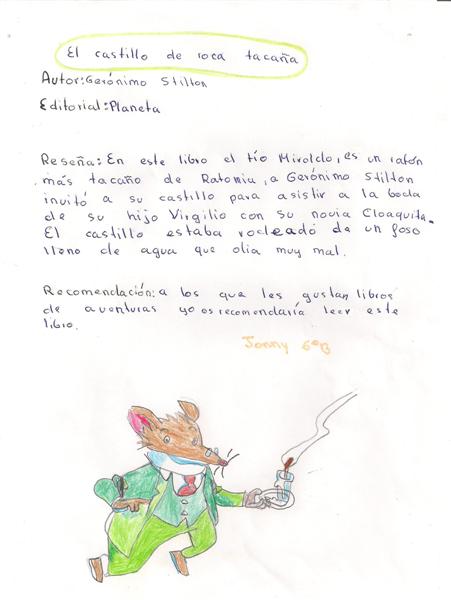 El castillo de roca tacaña
Autor: Gerónimo Stilton
Editorial: Planeta
Reseña: En este libro el tío Miroldo, es un ratón
más tacaño de Ratonia, a Gerónimo Stilton
invitó a su castillo para asistir a la boda
de su hijo Virgilio con su novia Cloaquita.
El castillo estaba rodeado de un foso
lleno de agua que olia muy mal.
Recomendación: a los que les gustan libros
de aventuras yo os recomendaría leer este
libro.
Jonny 6ºB